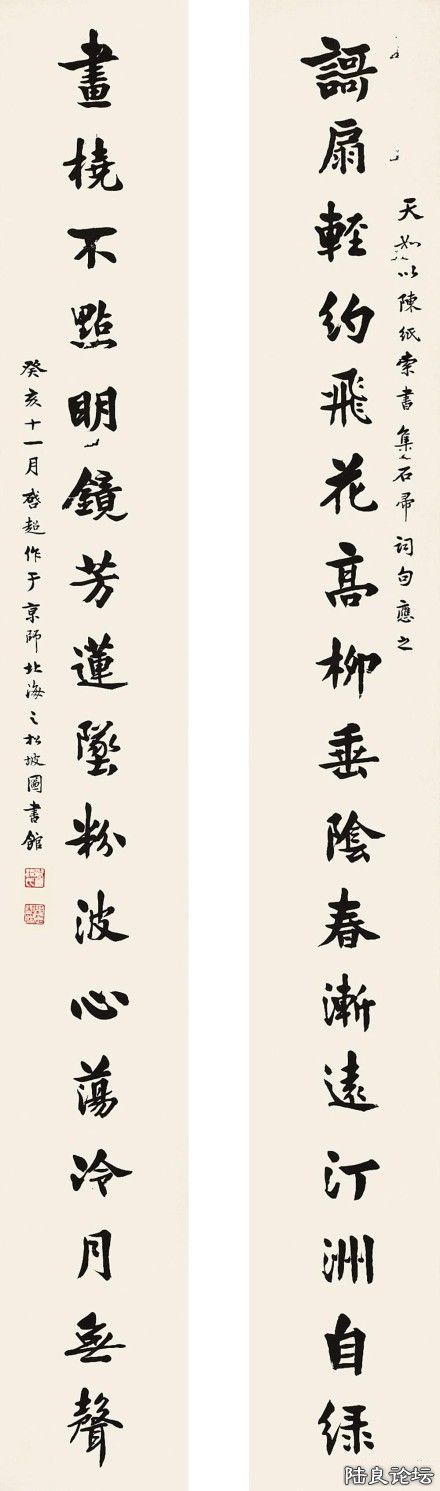 天如以陳紙索書集石帚詞句應之
謌扇輕約飛花髙柳垂陰春漸遠汀洲自緑
畫橈不點明鏡芳蓮墜粉波心蕩冷月無聲
癸亥十一月啓超作于京師北海之松坡圖書館
陆良论坛